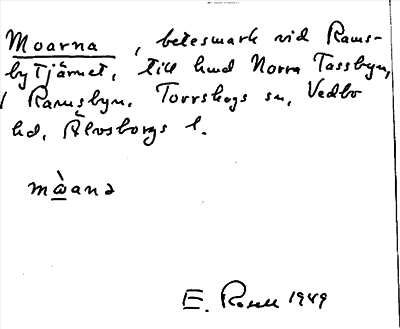 Moarna, betesmark vid Rams-
by Tjärnet, till hmd Norra Tassbyn,
i Ramsbyn. Torrskogs sn, Vedbo
hd, Älvsborgs l.
mɑ̀ana
E. 1949